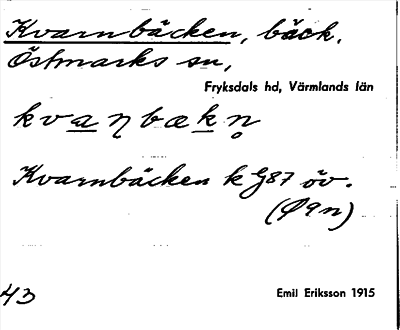 Kvarnbäcken, bäck.
Östmarks sn,
Fryksdals hd, Värmlands län
kvaɳbækn̥
Kvarnbäcken k G87 öv.
(Ø9n)
43
Emil Eriksson 1915